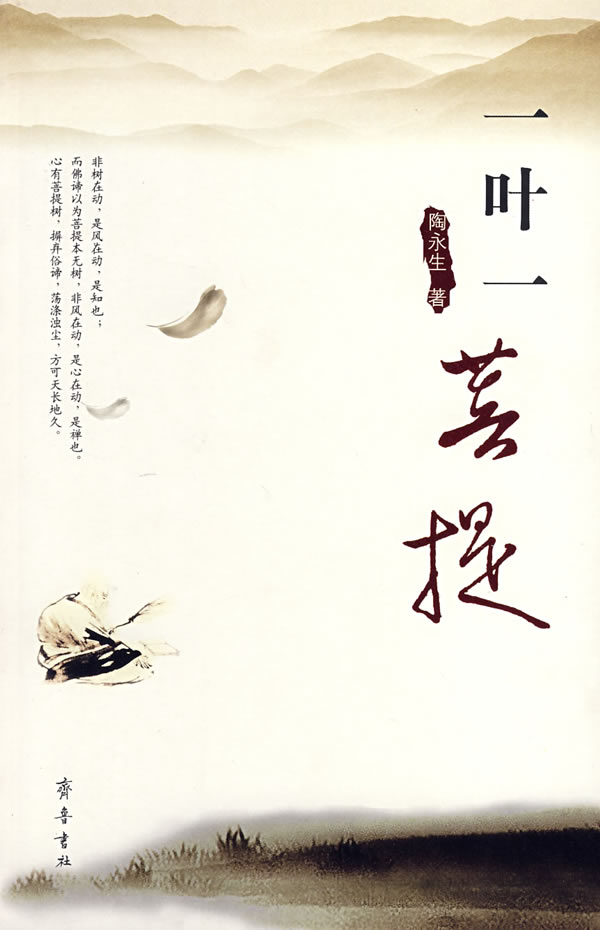 一叶一
菩提
陶永生 著
非树在动，是风在动，是知也；
而佛谛以为菩提本无树，非风在动，是心在动，是禅也。
心有菩提树，摒弃俗谛，荡涤浊尘，方可天长地久。
齊魯書社